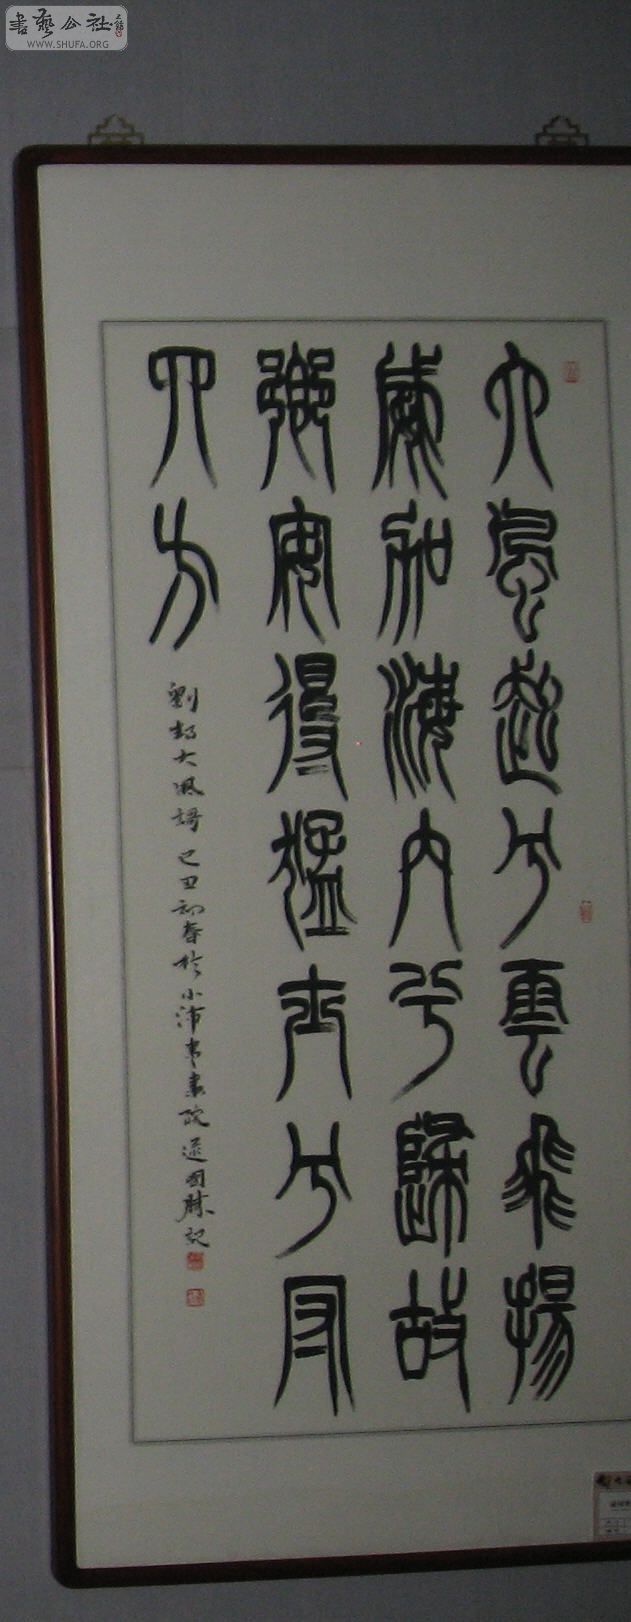 書藝公社
WWW.SHUFA.ORG
大風起兮雲飛揚
威加海內兮歸故
鄉安得猛士兮守
四方
劉邦大風詩 己丑初春於小沛書院國記